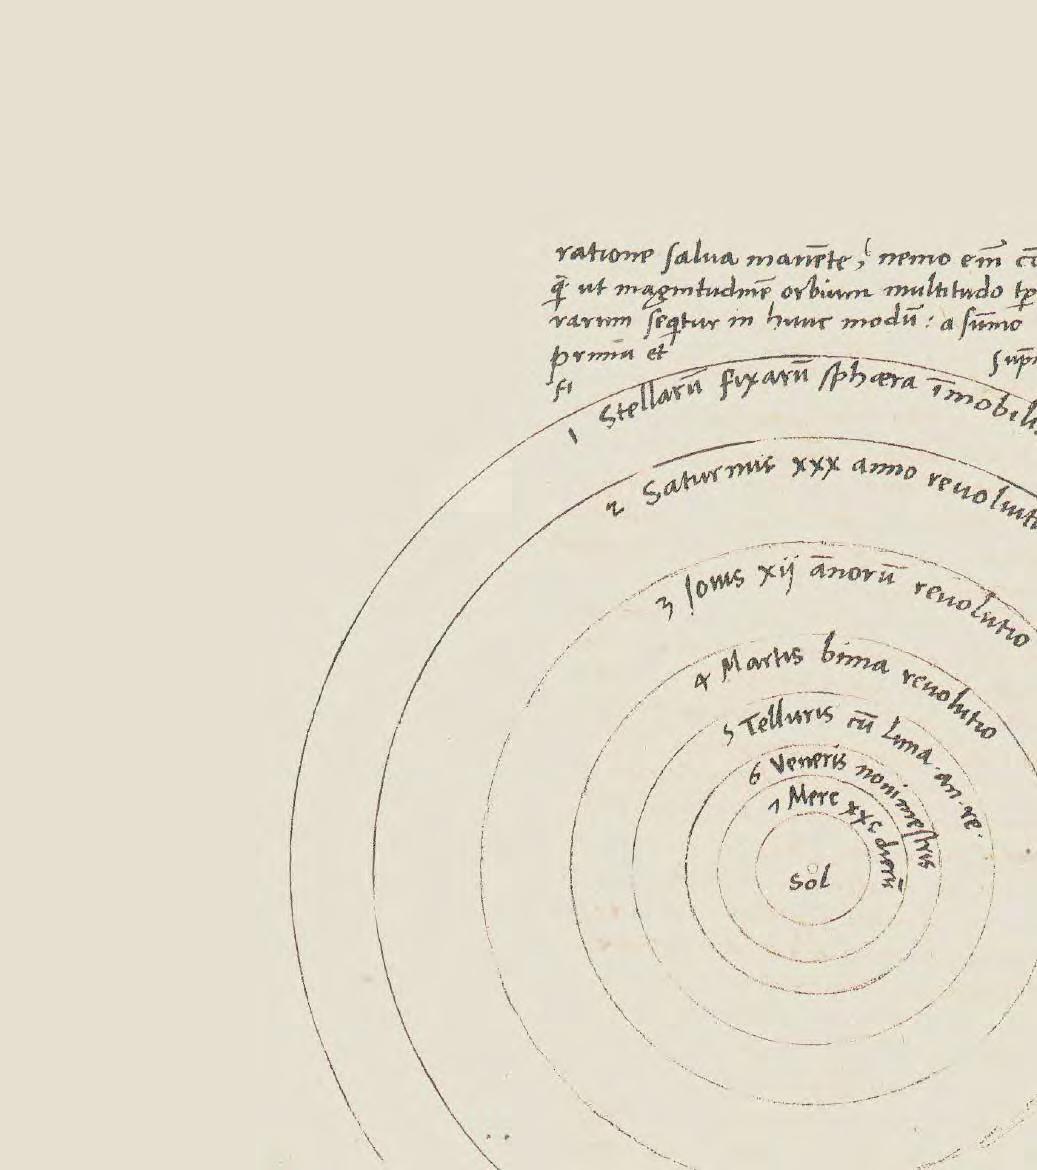 ratione salua manēte, nemo em̄ cō
q̄ ut magnitudinē orbium multitudo tp̄
rarum seqtur in hunc modū: a sūmo
prima et Sup̄
fi
1 Stellarū fixarū sphæra īmobilis
2 Saturnus xxx anno reuoluit
3 Jouis xij ānorū reuolutio
4 Martis bima reuolutio
5 Telluris cū Luna · an · re ·
6 Veneris nonimestris
7 Merc xxc dierū
Sol